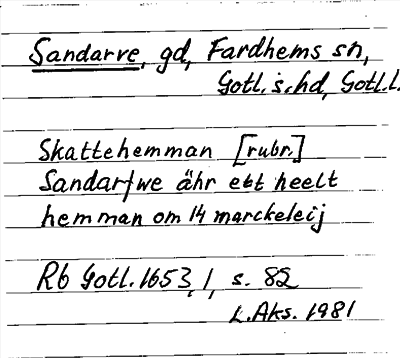 Sandarve, gd, Fardhems sn,
Gotl. s. hd, Gotl.l.
Skattehemman [rubr.]
Sandarfwe ähr ett heelt
hemman om 14 marckeleij
Rb Gotl. 1653, 1, s. 82
L. Aks. 1981